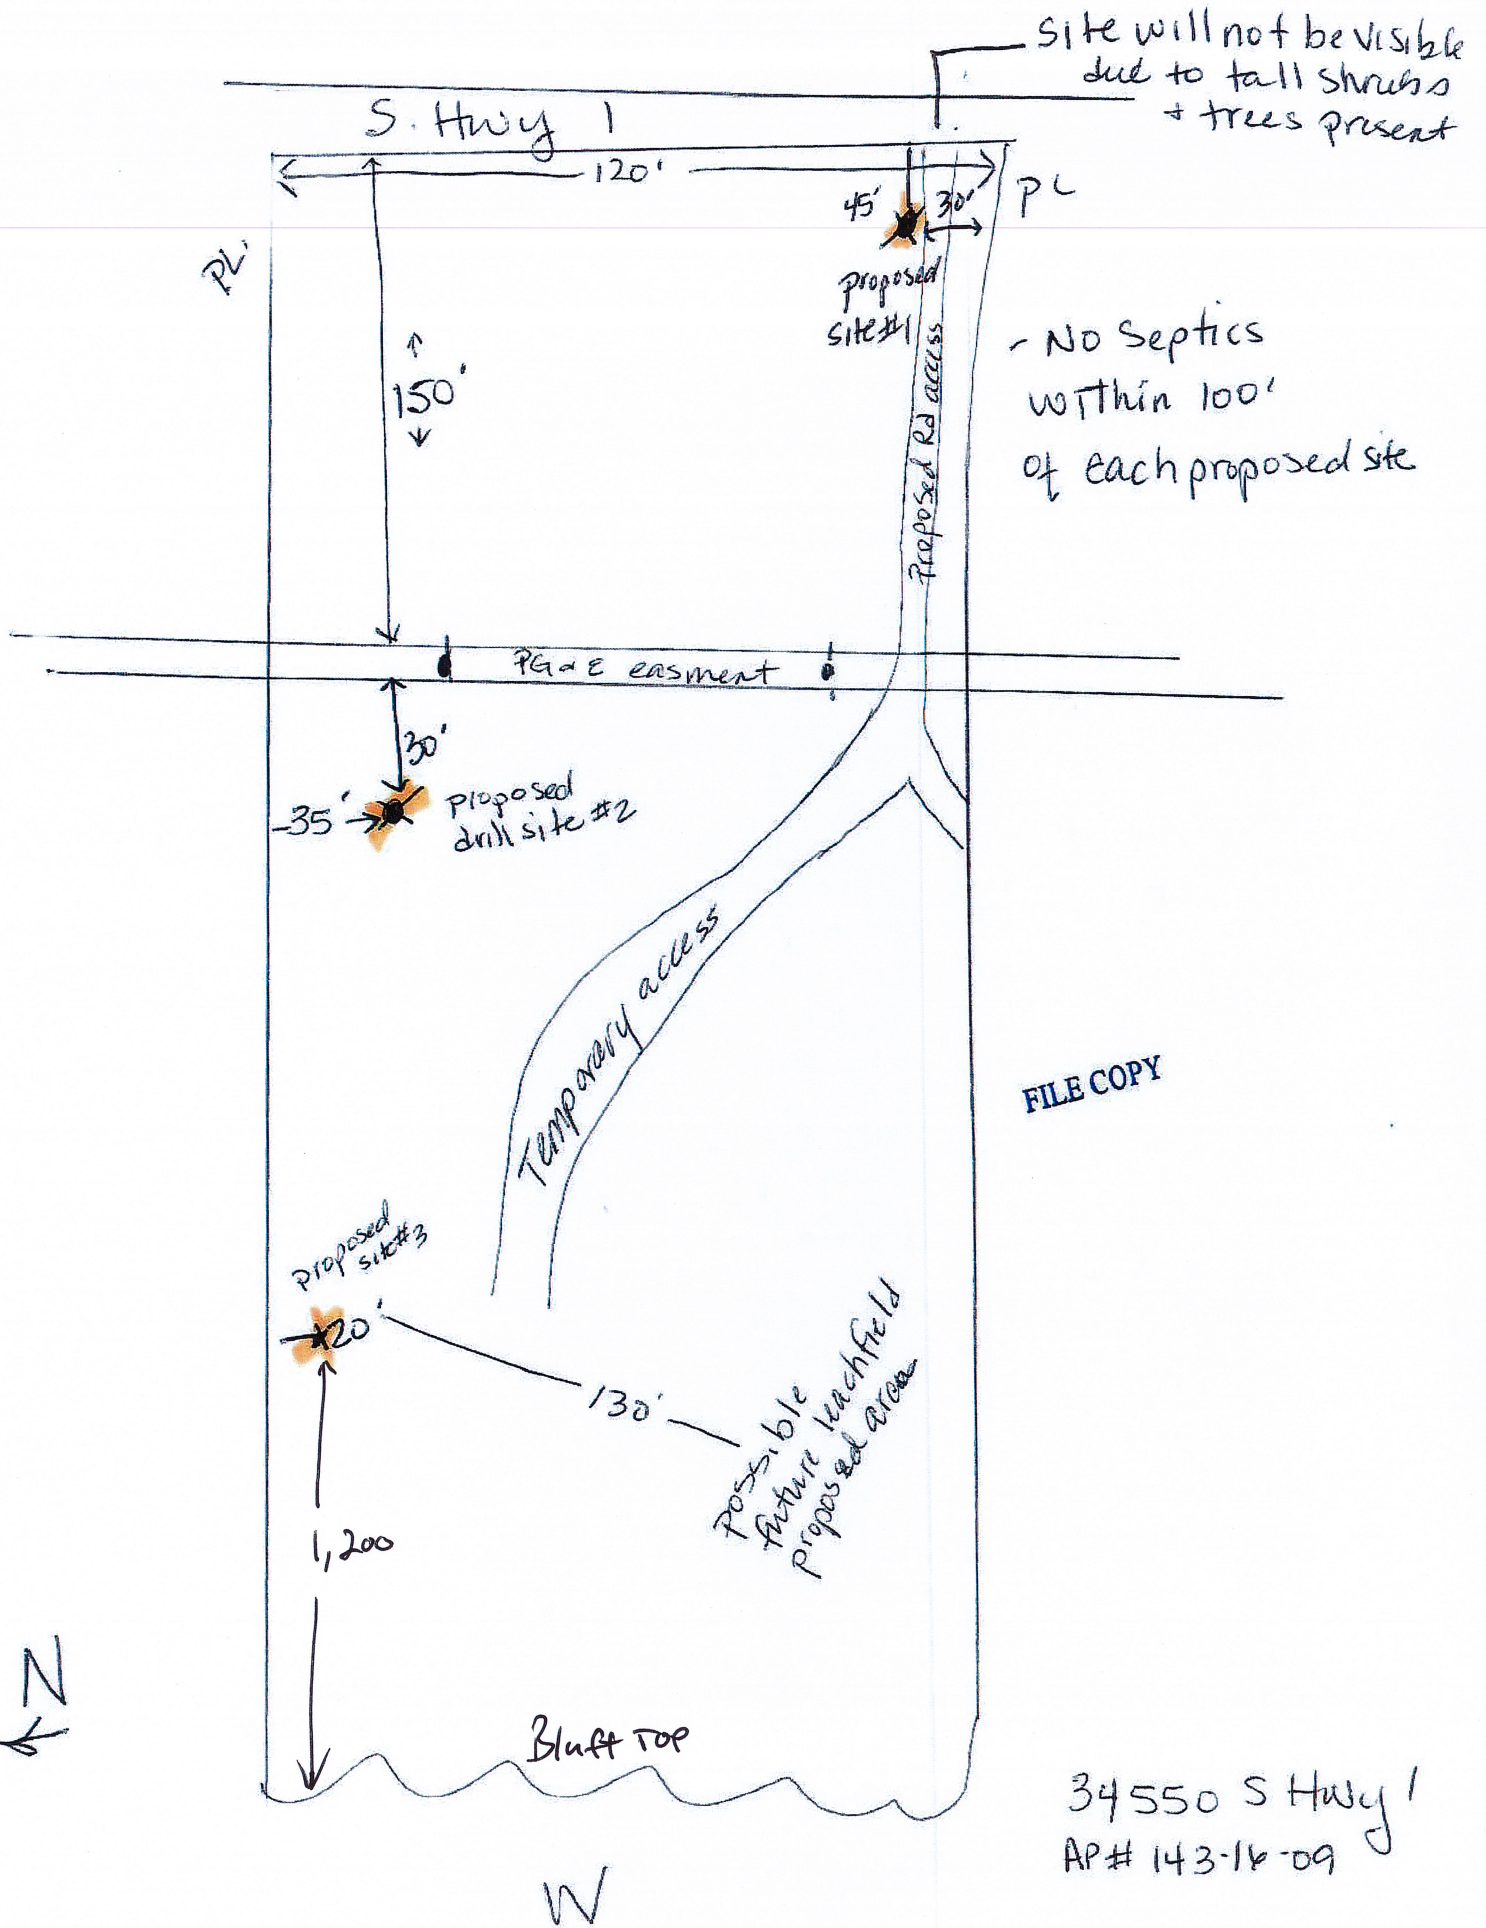 Site will not be visible
due to tall shrubs
+ trees present
S. Hwy 1
120'
PL
PL
45'
30'
proposed
site #1
Proposed Rd access
150'
- No Septics
within 100'
of each proposed site
PG & E easment
30'
35'
proposed
drill site #2
Temporary access
FILE COPY
proposed
site #3
20'
130'
possible
future leachfield
proposed area
1,200
N
Bluff Top
W
34550 S Hwy 1
AP# 143-16-09